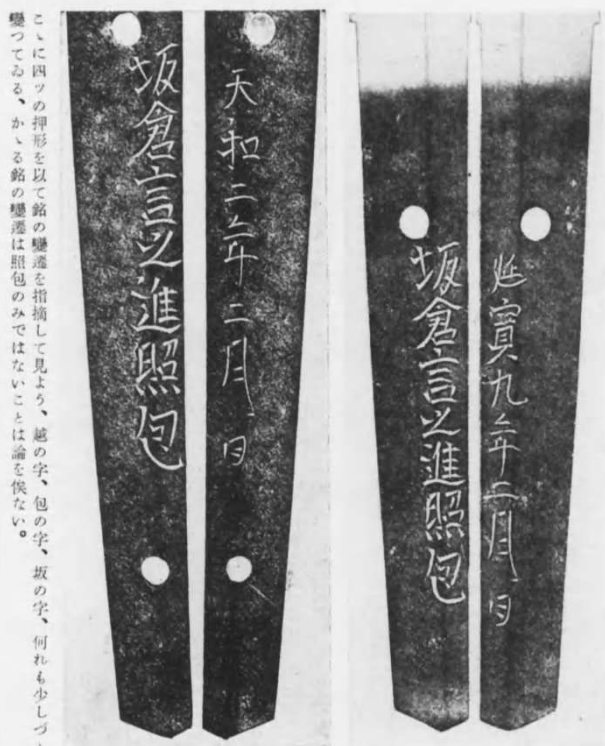 延寳九年二月日
坂倉言之進照包
天和二年二月日
坂倉言之進照包
こゝに四ツの押形を以て銘の變遷を指摘して見よう、越の字、包の字、坂の字、何れも少しづゝ
變つてゐる、かゝる銘の變遷は照包のみではないことは論を俟ない。